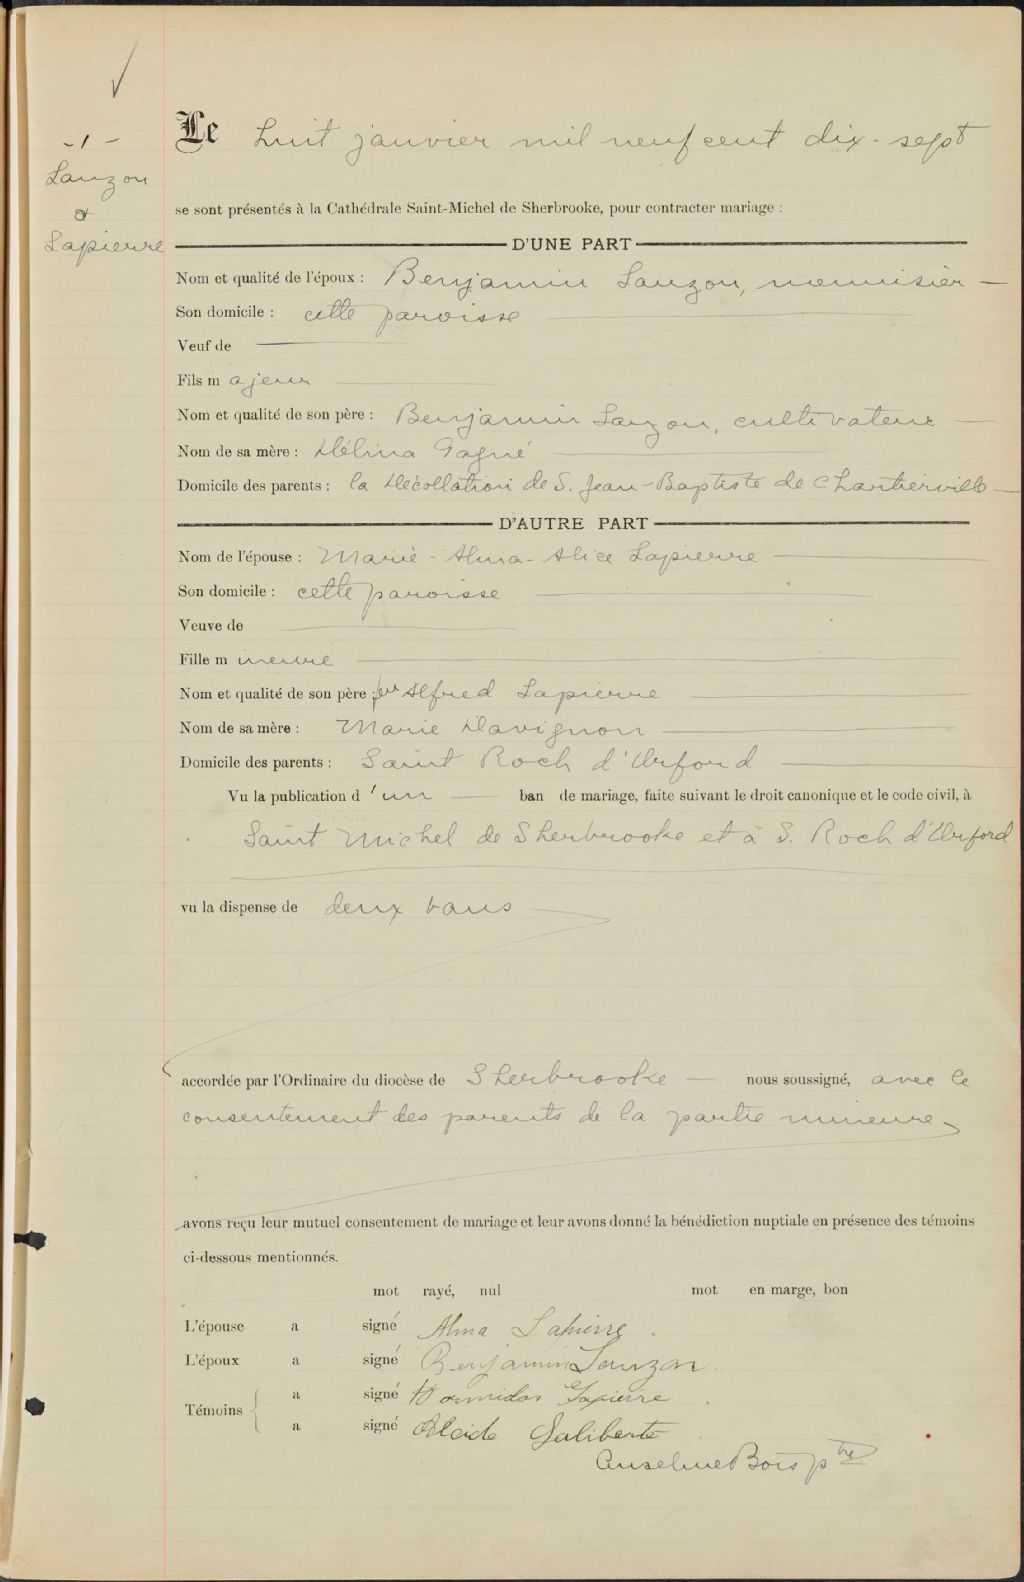 - 1 -
Lauzon
&
Lapierre
Le huit janvier mil neuf cent dix-sept
se sont présentés à la Cathédrale Saint-Michel de Sherbrooke, pour contracter mariage :
D'UNE PART
Nom et qualité de l'époux : Benjamin Lauzon, menuisier
Son domicile : cette paroisse
Veuf de
Fils majeur
Nom et qualité de son père : Benjamin Lauzon, cultivateur
Nom de sa mère : Délina Gagné
Domicile des parents : la Décollation de S. Jean-Baptiste de Chartierville
D'AUTRE PART
Nom de l'épouse : Marie-Alma-Alice Lapierre
Son domicile : cette paroisse
Veuve de
Fille mineure
Nom et qualité de son père : feu Alfred Lapierre
Nom de sa mère : Marie Davignon
Domicile des parents : Saint Roch d'Orford
Vu la publication d'un ban de mariage, faite suivant le droit canonique et le code civil, à
Saint Michel de Sherbrooke et à S. Roch d'Orford
vu la dispense de deux bans
accordée par l'Ordinaire du diocèse de Sherbrooke nous soussigné, avec le
consentement des parents de la partie mineure,
avons reçu leur mutuel consentement de mariage et leur avons donné la bénédiction nuptiale en présence des témoins
ci-dessous mentionnés.
mot rayé, nul mot en marge, bon
L'épouse a signé Alma Lapierre.
L'époux a signé Benjamin Lauzon.
Témoins { a signé Hormidas Lapierre
a signé Alcide Laliberté
Anselme Bois ptre